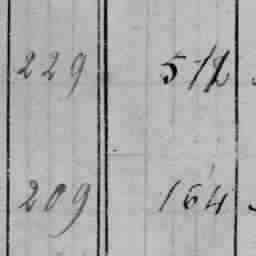 229 512
209 164